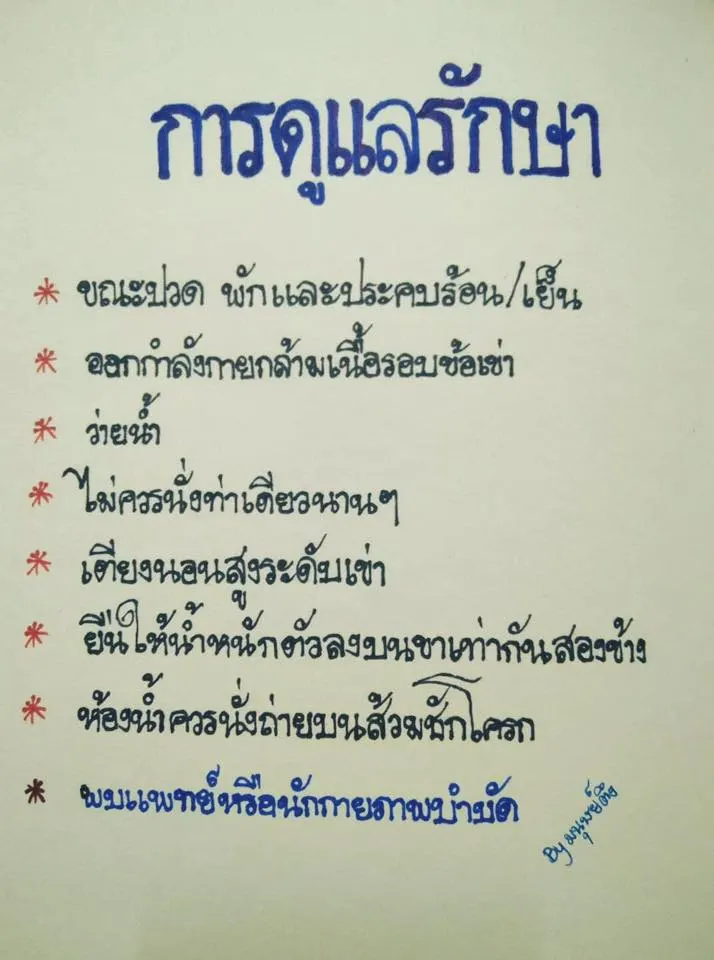 การดูแลรักษา
* ขณะปวด พักและประคบร้อน/เย็น
* ออกกำลังกายกล้ามเนื้อรอบข้อเข่า
* ว่ายน้ำ
* ไม่ควรนั่งท่าเดียวนานๆ
* เตียงนอนสูงระดับเข่า
* ยืนให้น้ำหนักตัวลงบนขาเท่ากันสองข้าง
* ห้องน้ำควรนั่งถ่ายบนส้วมชักโครก
* พบแพทย์หรือนักกายภาพบำบัด
By